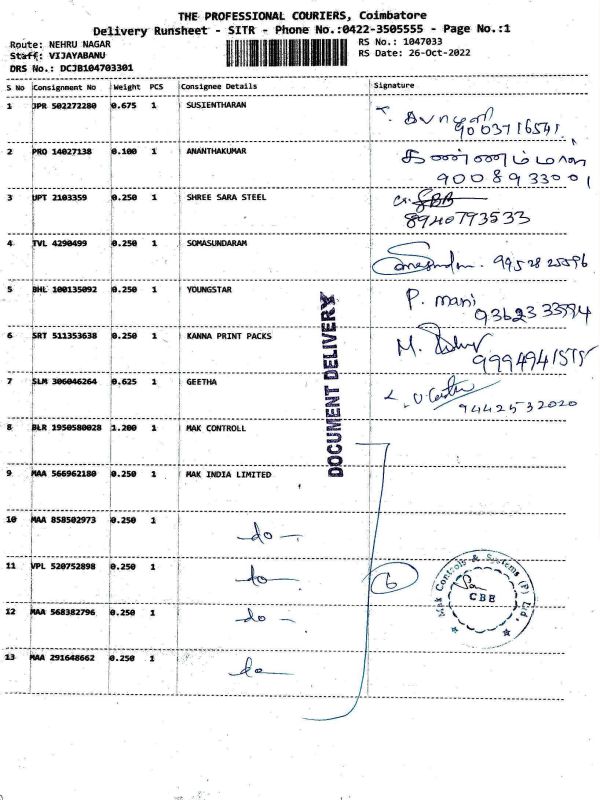 THE PROFESSIONAL COURIERS, Coimbatore
Delivery Runsheet - SITR - Phone No.:0422-3505555 - Page No.:1
Route: NEHRU NAGAR
RS No.: 1047033
Staff: VIJAYABANU
RS Date: 26-Oct-2022
DRS No.: DCJB104703301
S No Consignment No Weight PCS Consignee Details Signature
1 JPR 502272280 0.675 1 SUSIENTHARAN
9003716541
2 PRO 14027138 0.100 1 ANANTHAKUMAR
9008933001
3 UPT 2103359 0.250 1 SHREE SARA STEEL
8940793533
4 TVL 4290499 0.250 1 SOMASUNDARAM
Somasundm. 9952825596
5 BHL 100135092 0.250 1 YOUNGSTAR P. mani
9362333594
6 SRT 511353638 0.250 1 KANNA PRINT PACKS M.
7 SLM 306046264 0.625 1 GEETHA
9442532020
8 BLR 1950580028 1.200 1 MAK CONTROLL
9 MAA 566962180 0.250 1 MAK INDIA LIMITED
10 MAA 858502973 0.250 1 -do-
11 VPL 520752898 0.250 1 -do-
6
12 MAA 568382796 0.250 1 -do-
13 MAA 291648662 0.250 1 -do-
DOCUMENT DELIVERY
Mak Controls & Systems (P) Ltd.
CBE